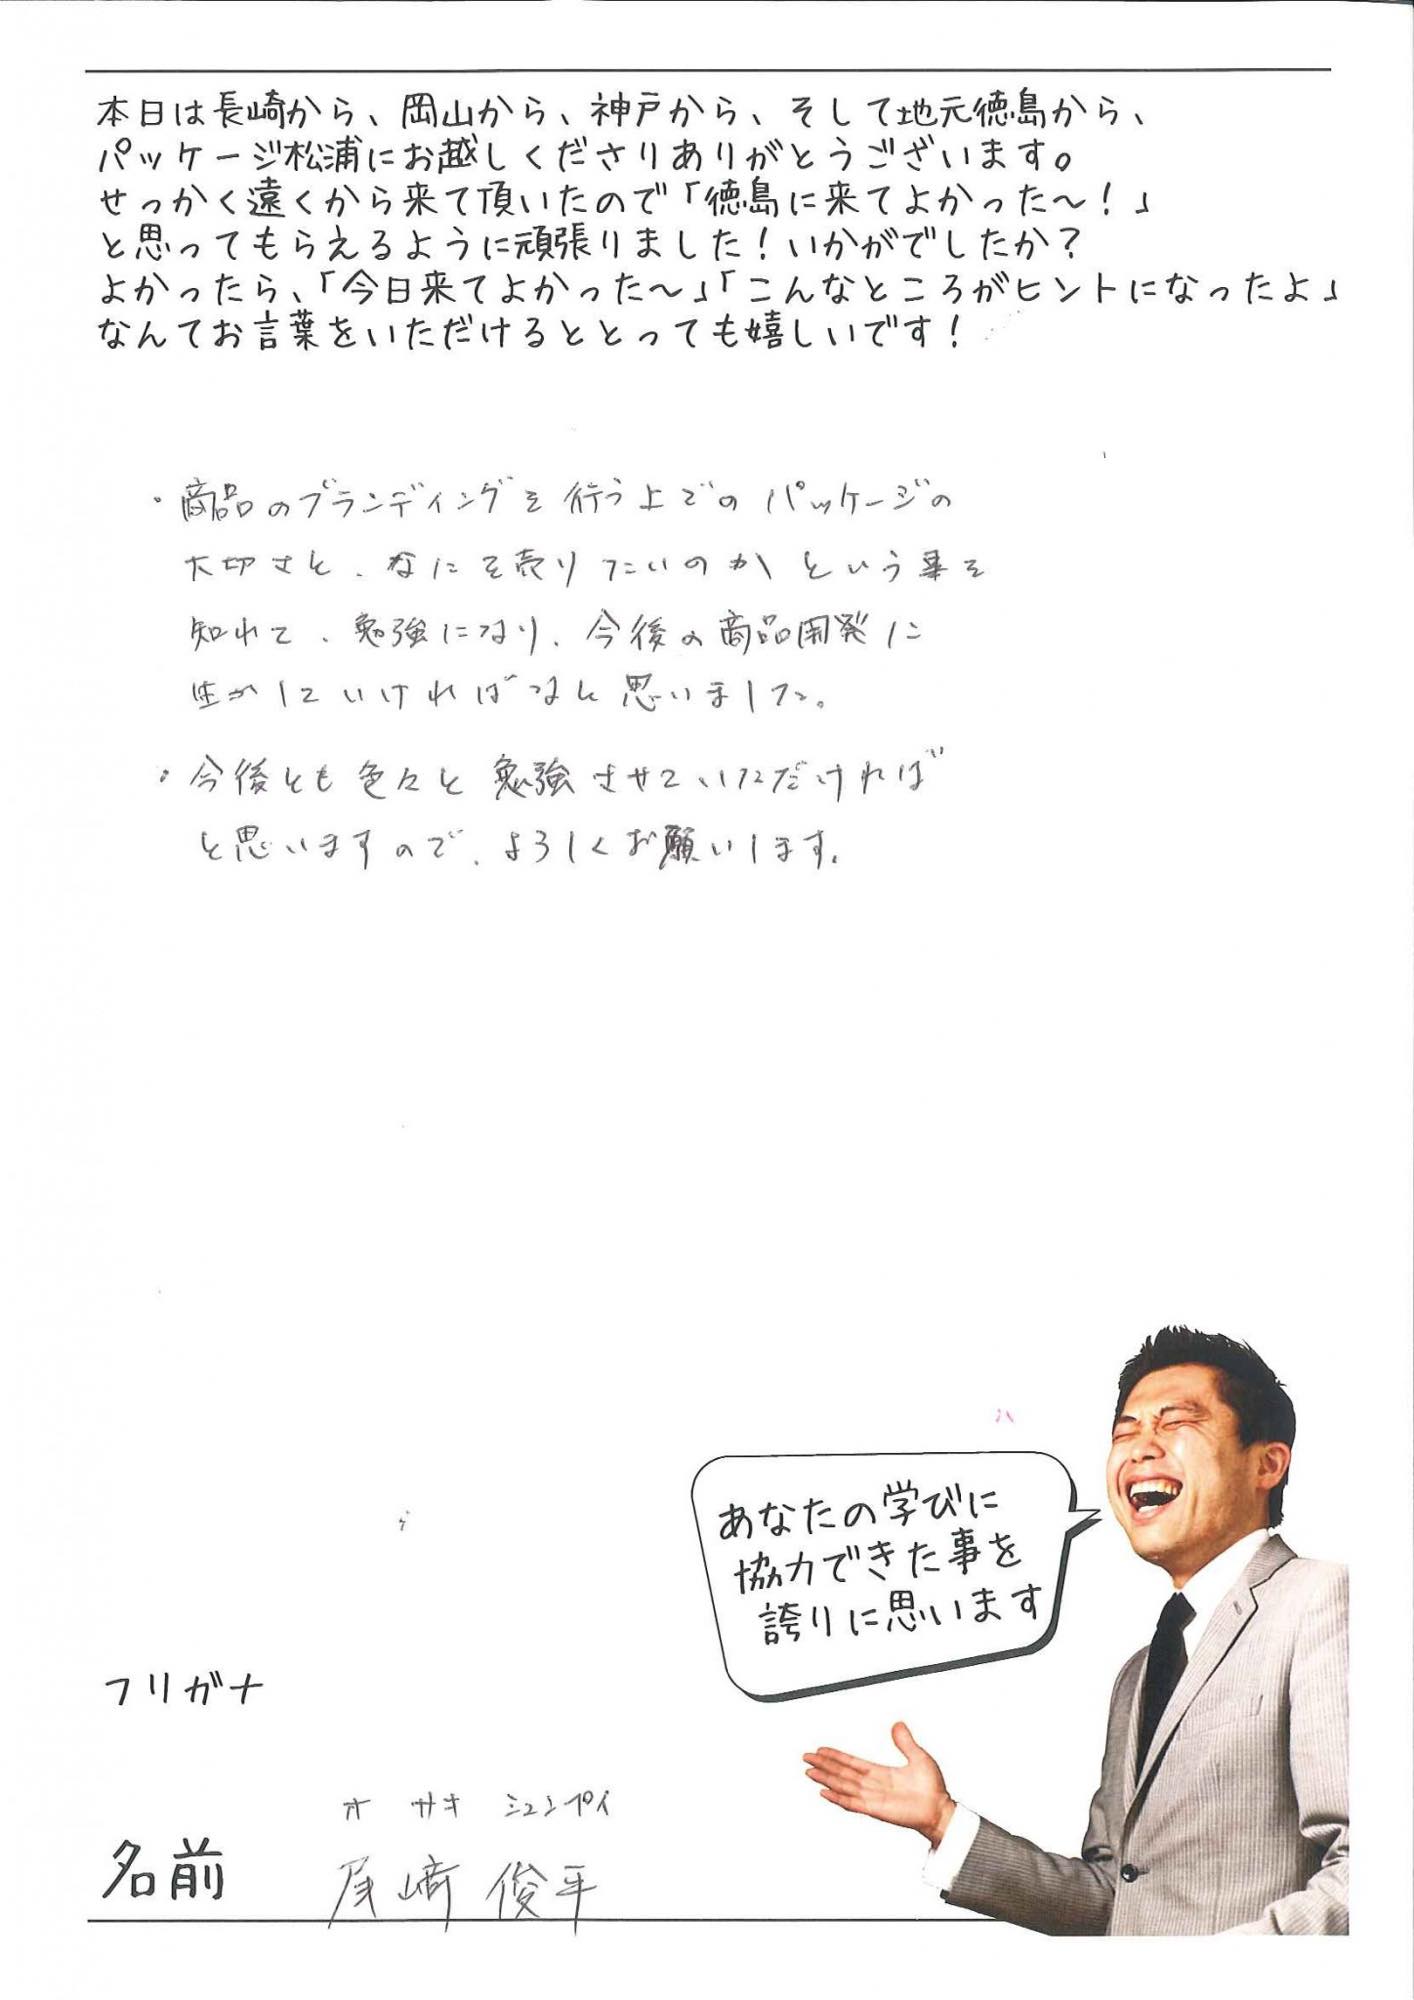 本日は長崎から、岡山から、神戸から、そして地元徳島から、
パッケージ松浦にお越しくださりありがとうございます。
せっかく遠くから来て頂いたので「徳島に来てよかった〜！」
と思ってもらえるように頑張りました！いかがでしたか？
よかったら、「今日来てよかった〜」「こんなところがヒントになったよ」
なんてお言葉をいただけるととっても嬉しいです！
・商品のブランディングを行う上でのパッケージの
大切さと、なにを売りたいのかという事を
知れて、勉強になり、今後の商品開発に
生かしていければなと思いました。
・今後とも色々と勉強させていただければ
と思いますので、よろしくお願いします。
あなたの学びに
協力できた事を
誇りに思います
フリガナ
オサキ シュンペイ
名前 尾﨑 俊平